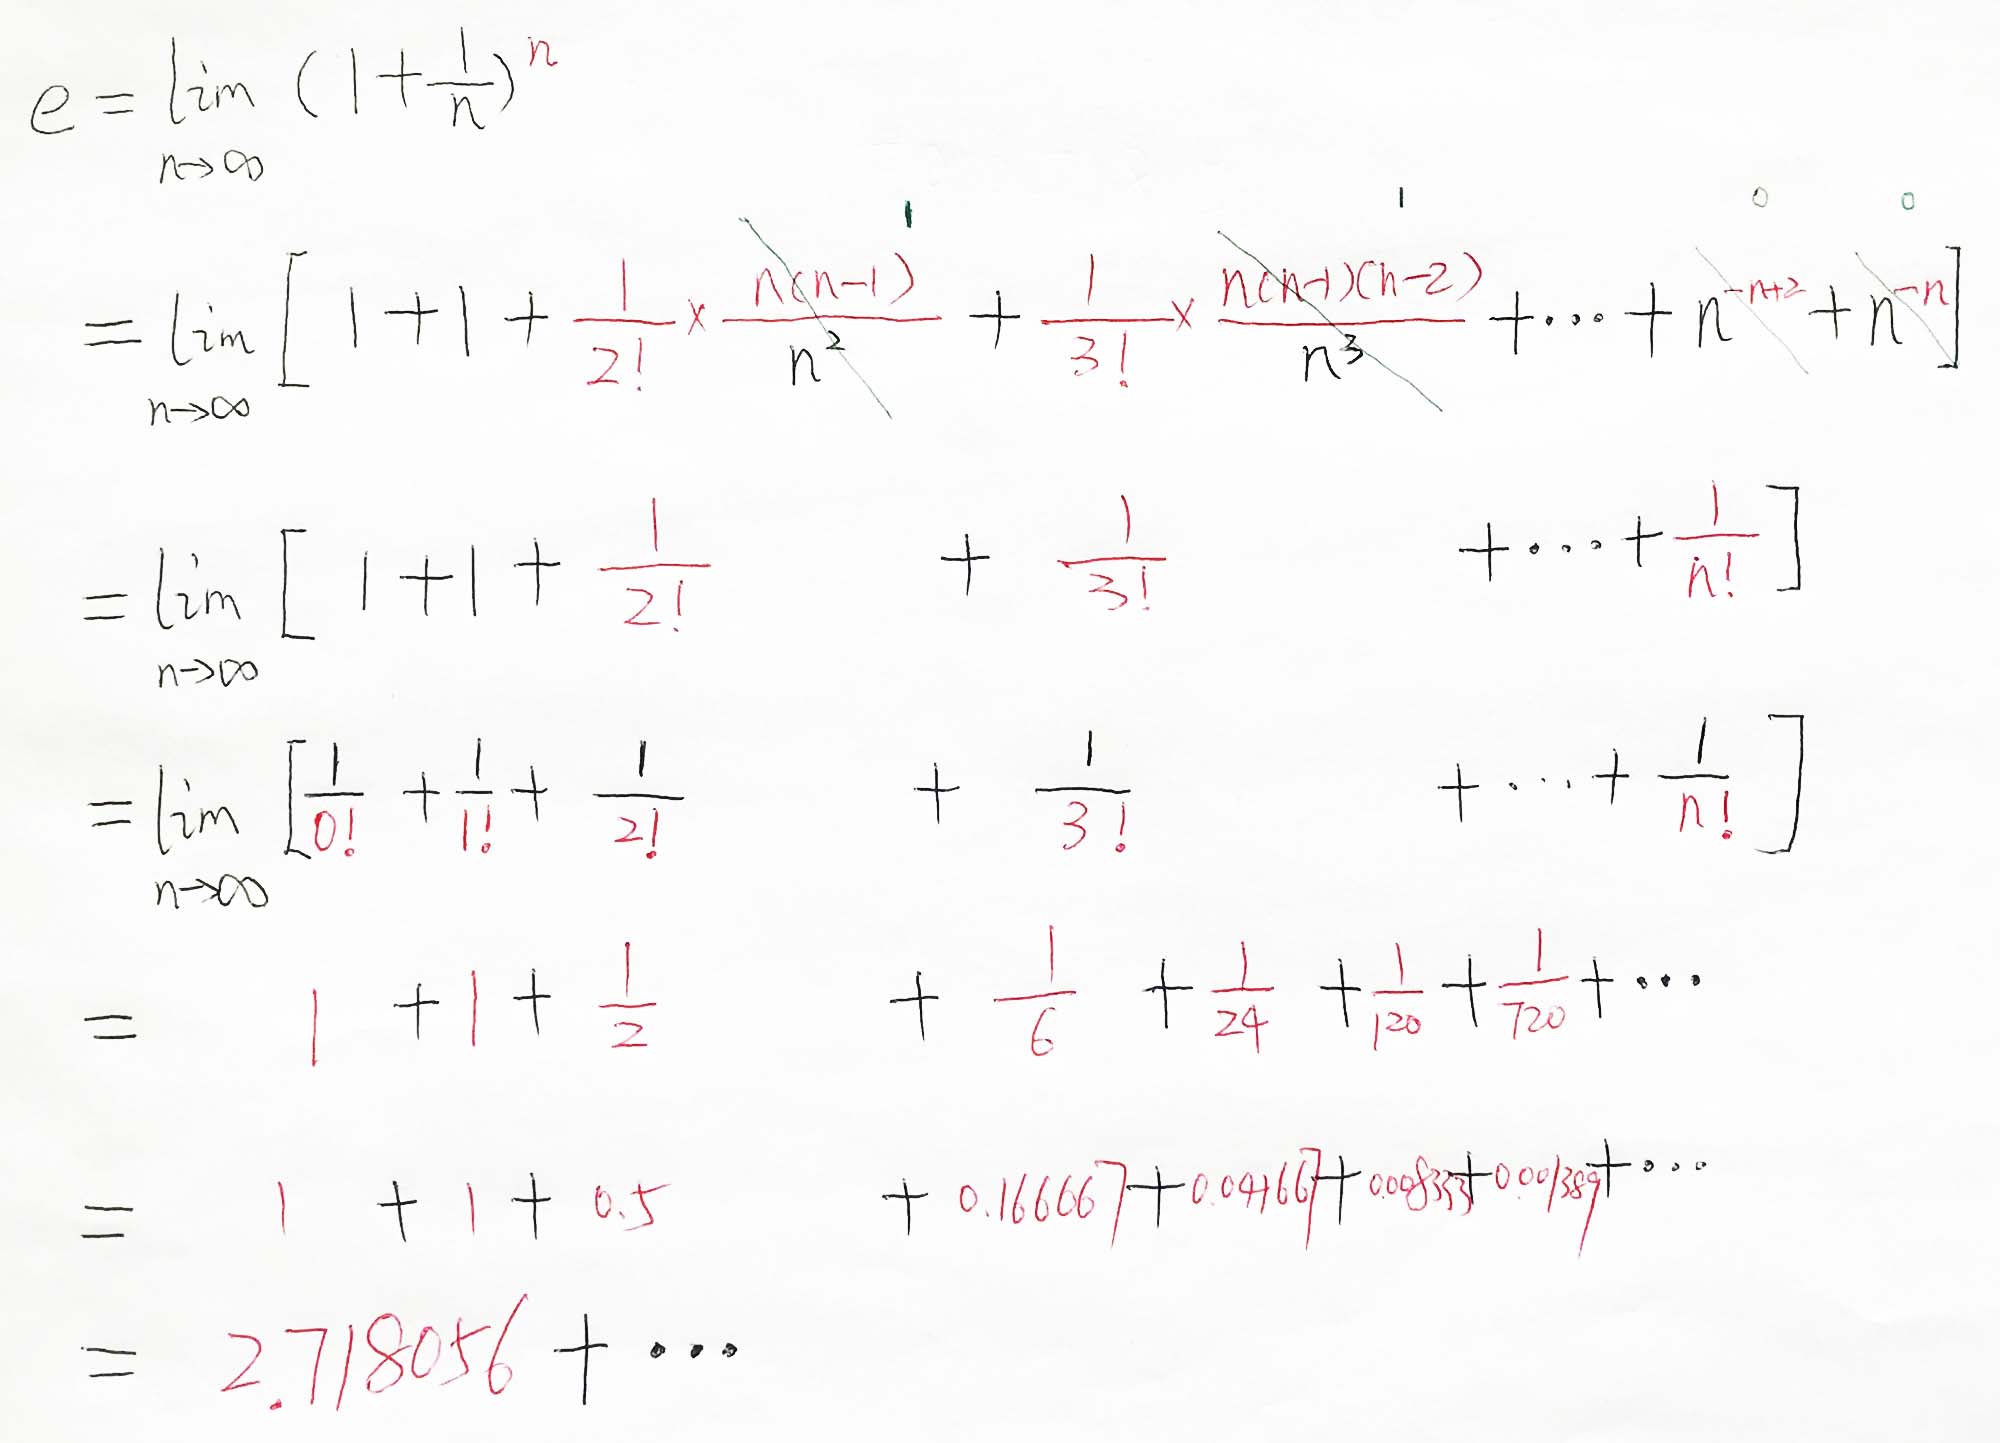 e = lim n→∞ (1 + 1/n)^n
1 1 0 0
= lim n→∞ [ 1 + 1 + 1/2! × n(n-1)/n² + 1/3! × n(n-1)(n-2)/n³ + ... + n^(-n+2) + n^(-n) ]
= lim n→∞ [ 1 + 1 + 1/2! + 1/3! + ... + 1/n! ]
= lim n→∞ [ 1/0! + 1/1! + 1/2! + 1/3! + ... + 1/n! ]
= 1 + 1 + 1/2 + 1/6 + 1/24 + 1/120 + 1/720 + ...
= 1 + 1 + 0.5 + 0.166667 + 0.041667 + 0.008333 + 0.001389 + ...
= 2.718056 + ...